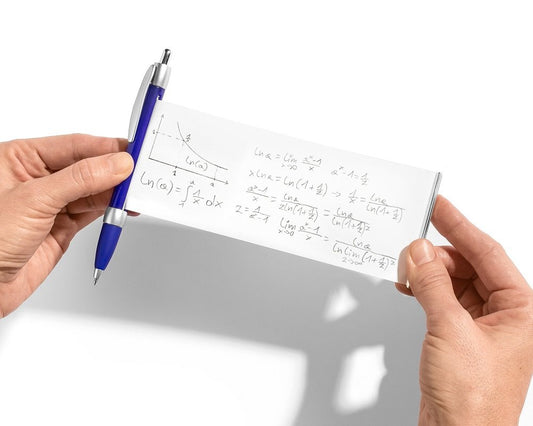 ln(a)
ln(a) = ∫₁ᵃ 1/x dx
ln a = lim x→0 (aˣ-1)/x    aˣ-1 = 1/z
x ln a = ln(1+1/z) → 1/z = ln a/ln(1+1/z)
(aˣ-1)/x = ln a/(z ln(1+1/z)) = ln a/ln(1+1/z)ᶻ
lim x→0 (aˣ-1)/x = ln a/(ln lim z→∞ (1+1/z)ᶻ)